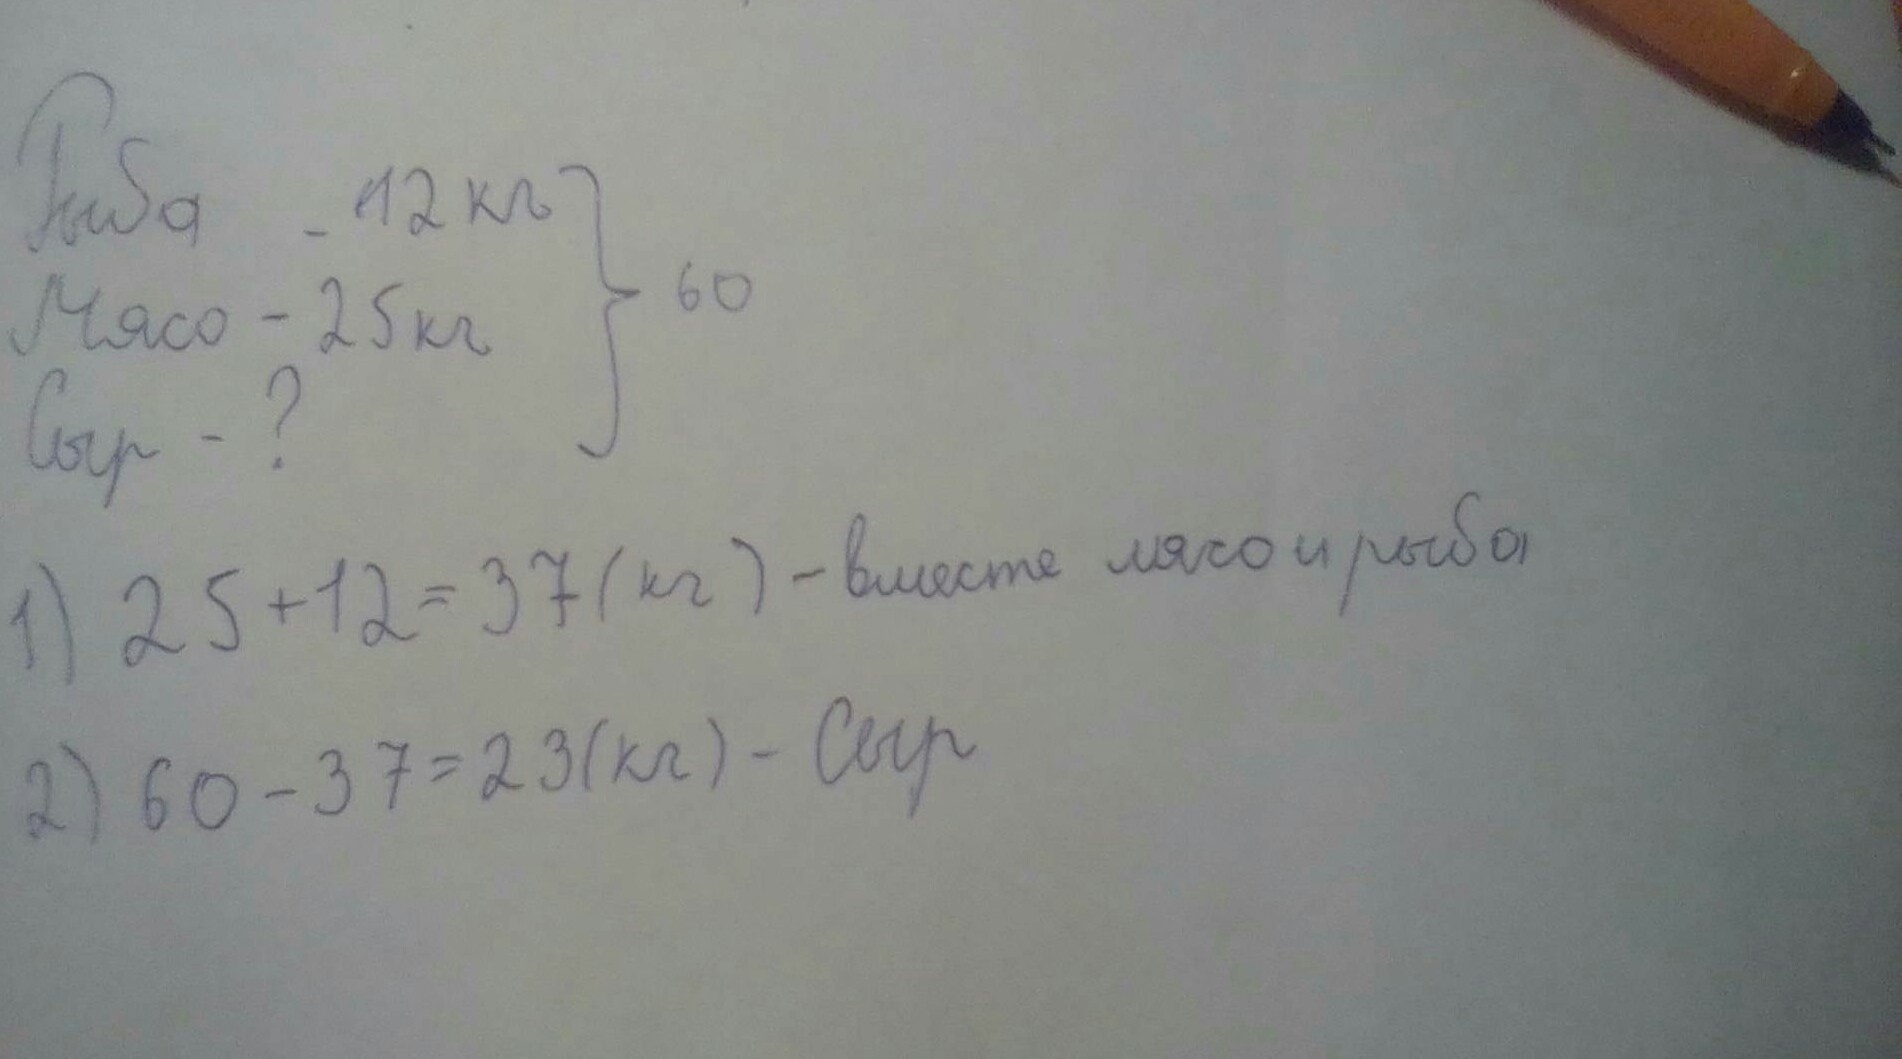 Рыба - 12 кг
Мясо - 25 кг } 60
Сыр - ?
1) 25+12=37(кг) - вместе мясо и рыба
2) 60-37=23(кг) - Сыр